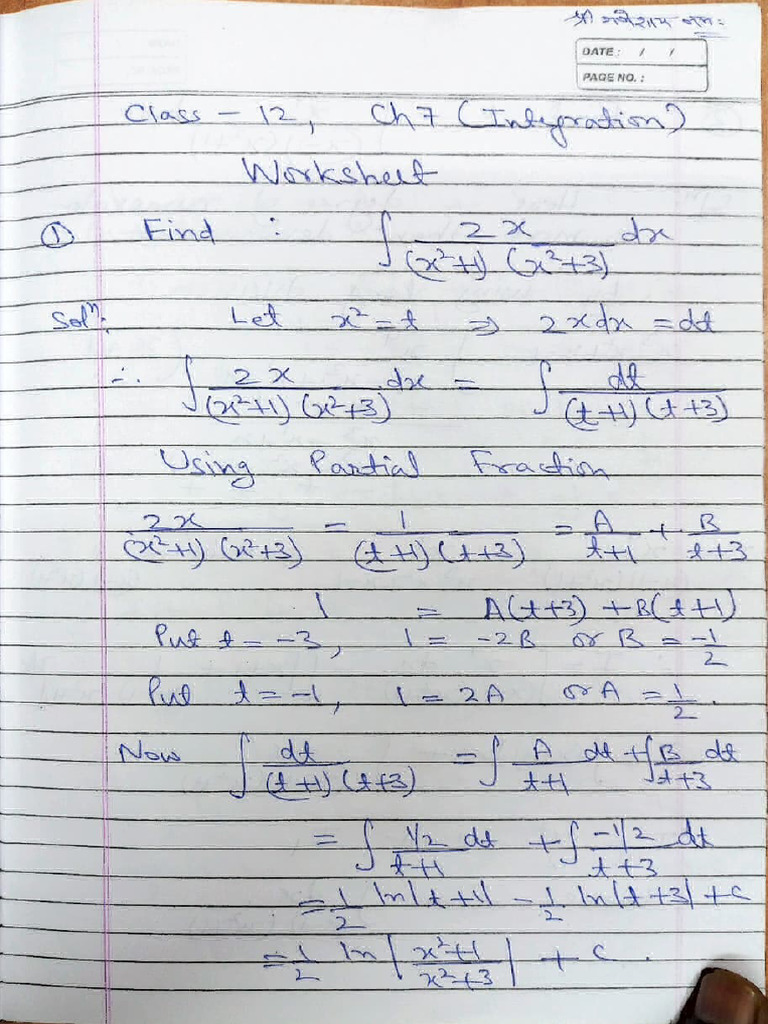 श्री गणेशाय नमः
DATE: / /
PAGE NO.:
Class - 12, Ch 7 (Integration)
Worksheet
① Find : ∫ 2x / (x²+1) (x²+3) dx
Solⁿ: Let x² = t ⇒ 2x dx = dt
∴ ∫ 2x / (x²+1) (x²+3) dx = ∫ dt / (t+1) (t+3)
Using Partial Fraction
2x / (x²+1) (x²+3) = 1 / (t+1) (t+3) = A / t+1 + B / t+3
1 = A(t+3) + B(t+1)
Put t = -3, 1 = -2B or B = -1/2
Put t = -1, 1 = 2A or A = 1/2.
Now ∫ dt / (t+1) (t+3) = ∫ A / t+1 dt + ∫ B / t+3 dt
= ∫ 1/2 / t+1 dt + ∫ -1/2 / t+3 dt
= 1/2 ln|t+1| - 1/2 ln|t+3| + c
= 1/2 ln | x²+1 / x²+3 | + c.